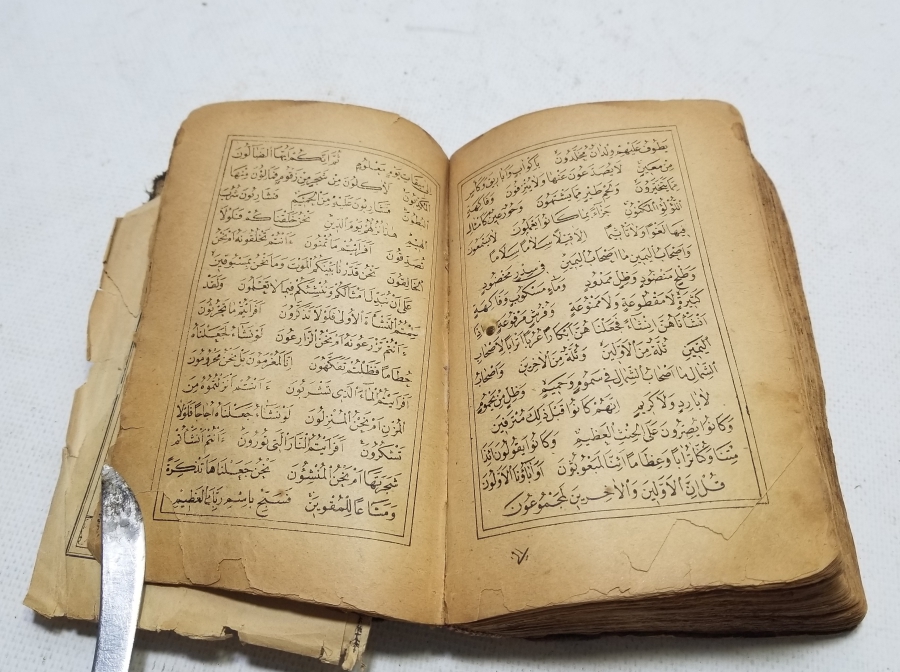 يَطُوفُ عَلَيْهِمْ وِلْدَانٌ مُخَلَّدُونَ بِأَكْوَابٍ وَأَبَارِيقَ وَكَأْسٍ
مِنْ مَعِينٍ لَا يُصَدَّعُونَ عَنْهَا وَلَا يُنْزِفُونَ وَفَاكِهَةٍ
مِمَّا يَتَخَيَّرُونَ وَلَحْمِ طَيْرٍ مِمَّا يَشْتَهُونَ وَحُورٌ عِينٌ كَأَمْثَالِ
اللُّؤْلُؤِ الْمَكْنُونِ جَزَاءً بِمَا كَانُوا يَعْمَلُونَ لَا يَسْمَعُونَ
فِيهَا لَغْوًا وَلَا تَأْثِيمًا إِلَّا قِيلًا سَلَامًا سَلَامًا
وَأَصْحَابُ الْيَمِينِ مَا أَصْحَابُ الْيَمِينِ فِي سِدْرٍ مَخْضُودٍ
وَطَلْحٍ مَنْضُودٍ وَظِلٍّ مَمْدُودٍ وَمَاءٍ مَسْكُوبٍ وَفَاكِهَةٍ
كَثِيرَةٍ لَا مَقْطُوعَةٍ وَلَا مَمْنُوعَةٍ وَفُرُشٍ مَرْفُوعَةٍ إِنَّا
أَنْشَأْنَاهُنَّ إِنْشَاءً فَجَعَلْنَاهُنَّ أَبْكَارًا عُرُبًا أَتْرَابًا لِأَصْحَابِ
الْيَمِينِ ثُلَّةٌ مِنَ الْأَوَّلِينَ وَثُلَّةٌ مِنَ الْآخِرِينَ وَأَصْحَابُ
الشِّمَالِ مَا أَصْحَابُ الشِّمَالِ فِي سَمُومٍ وَحَمِيمٍ وَظِلٍّ مِنْ يَحْمُومٍ
لَا بَارِدٍ وَلَا كَرِيمٍ إِنَّهُمْ كَانُوا قَبْلَ ذَلِكَ مُتْرَفِينَ
وَكَانُوا يُصِرُّونَ عَلَى الْحِنْثِ الْعَظِيمِ وَكَانُوا يَقُولُونَ أَئِذَا
مِتْنَا وَكُنَّا تُرَابًا وَعِظَامًا أَئِنَّا لَمَبْعُوثُونَ أَوَ آبَاؤُنَا الْأَوَّلُونَ
قُلْ إِنَّ الْأَوَّلِينَ وَالْآخِرِينَ لَمَجْمُوعُونَ
إِلَى مِيقَاتِ يَوْمٍ مَعْلُومٍ ثُمَّ إِنَّكُمْ أَيُّهَا الضَّالُّونَ
الْمُكَذِّبُونَ لَآكِلُونَ مِنْ شَجَرٍ مِنْ زَقُّومٍ فَمَالِئُونَ مِنْهَا
الْبُطُونَ فَشَارِبُونَ عَلَيْهِ مِنَ الْحَمِيمِ فَشَارِبُونَ شُرْبَ
الْهِيمِ هَذَا نُزُلُهُمْ يَوْمَ الدِّينِ نَحْنُ خَلَقْنَاكُمْ فَلَوْلَا
تُصَدِّقُونَ أَفَرَأَيْتُمْ مَا تُمْنُونَ ءَأَنْتُمْ تَخْلُقُونَهُ أَمْ نَحْنُ
الْخَالِقُونَ نَحْنُ قَدَّرْنَا بَيْنَكُمُ الْمَوْتَ وَمَا نَحْنُ بِمَسْبُوقِينَ
عَلَى أَنْ نُبَدِّلَ أَمْثَالَكُمْ وَنُنْشِئَكُمْ فِيمَا لَا تَعْلَمُونَ وَلَقَدْ
عَلِمْتُمُ النَّشْأَةَ الْأُولَى فَلَوْلَا تَذَكَّرُونَ أَفَرَأَيْتُمْ مَا تَحْرُثُونَ
ءَأَنْتُمْ تَزْرَعُونَهُ أَمْ نَحْنُ الزَّارِعُونَ لَوْ نَشَاءُ لَجَعَلْنَاهُ
حُطَامًا فَظَلْتُمْ تَفَكَّهُونَ إِنَّا لَمُغْرَمُونَ بَلْ نَحْنُ مَحْرُومُونَ
أَفَرَأَيْتُمُ الْمَاءَ الَّذِي تَشْرَبُونَ ءَأَنْتُمْ أَنْزَلْتُمُوهُ مِنَ
الْمُزْنِ أَمْ نَحْنُ الْمُنْزِلُونَ لَوْ نَشَاءُ جَعَلْنَاهُ أُجَاجًا فَلَوْلَا
تَشْكُرُونَ أَفَرَأَيْتُمُ النَّارَ الَّتِي تُورُونَ ءَأَنْتُمْ أَنْشَأْتُمْ
شَجَرَتَهَا أَمْ نَحْنُ الْمُنْشِئُونَ نَحْنُ جَعَلْنَاهَا تَذْكِرَةً
وَمَتَاعًا لِلْمُقْوِينَ فَسَبِّحْ بِاسْمِ رَبِّكَ الْعَظِيمِ